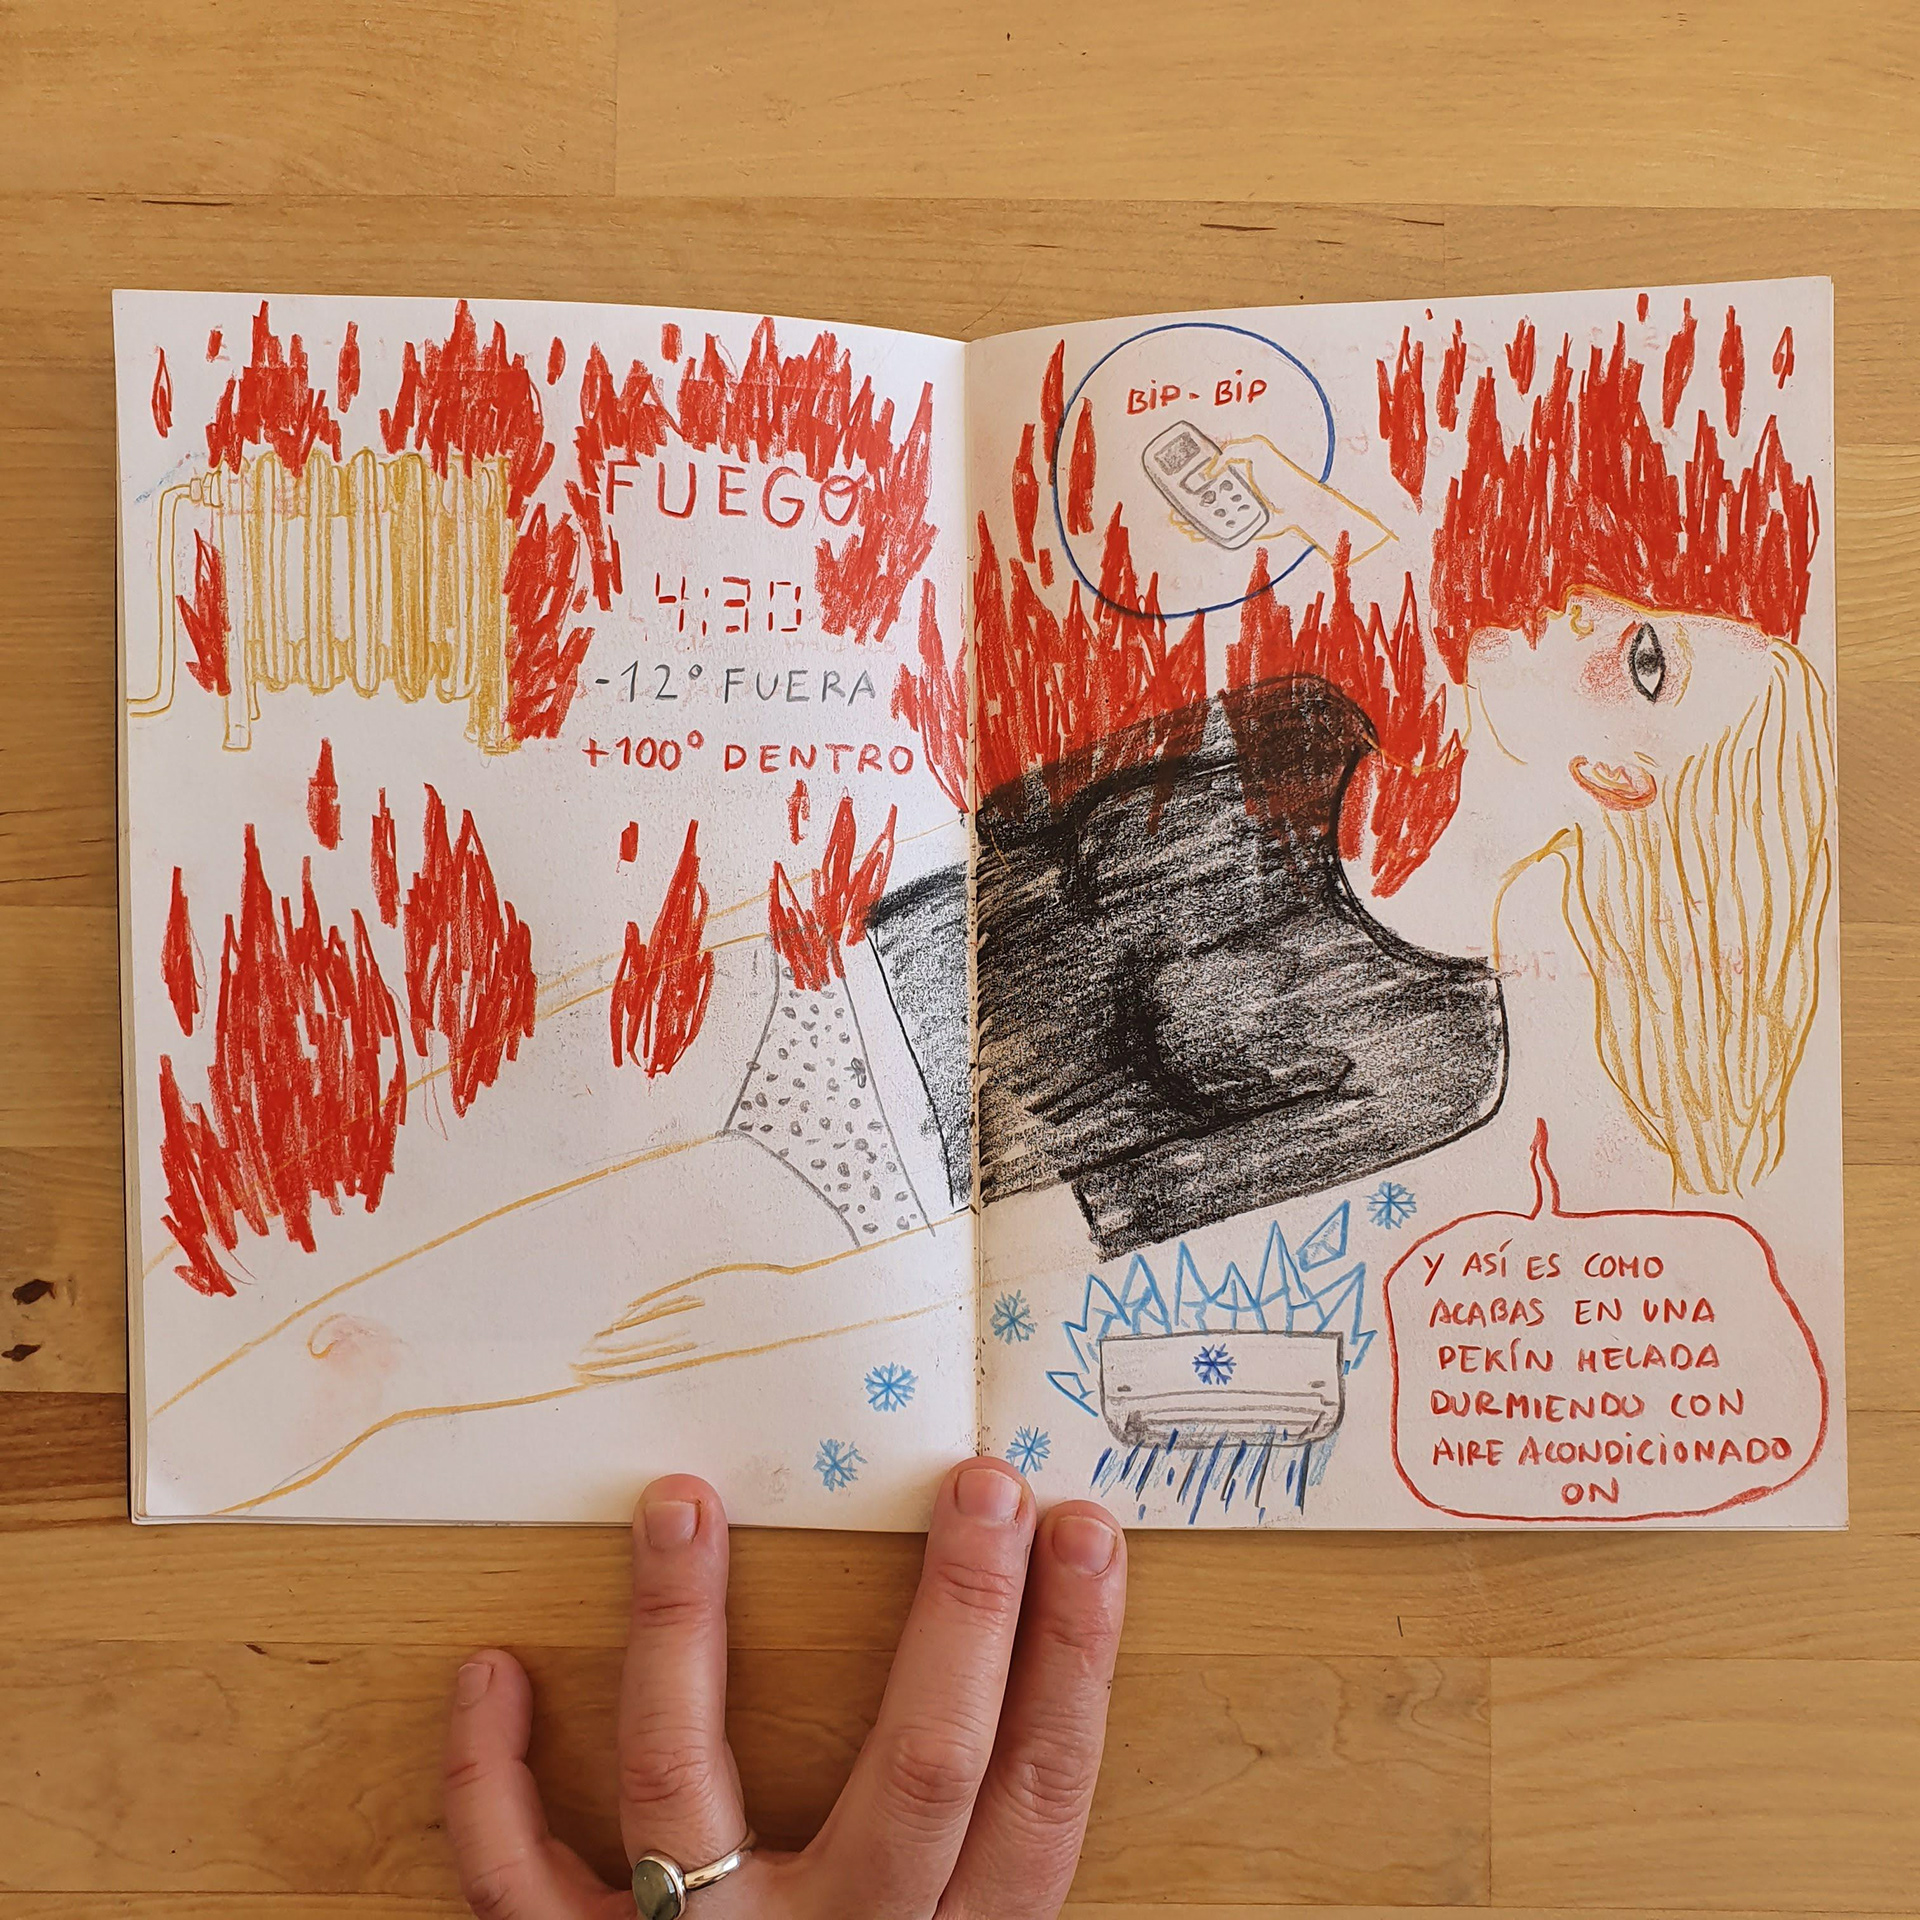 FUEGO
4:30
-12° FUERA
+100° DENTRO
BIP - BIP
Y ASÍ ES COMO
ACABAS EN UNA
PEKÍN HELADA
DURMIENDO CON
AIRE ACONDICIONADO
ON